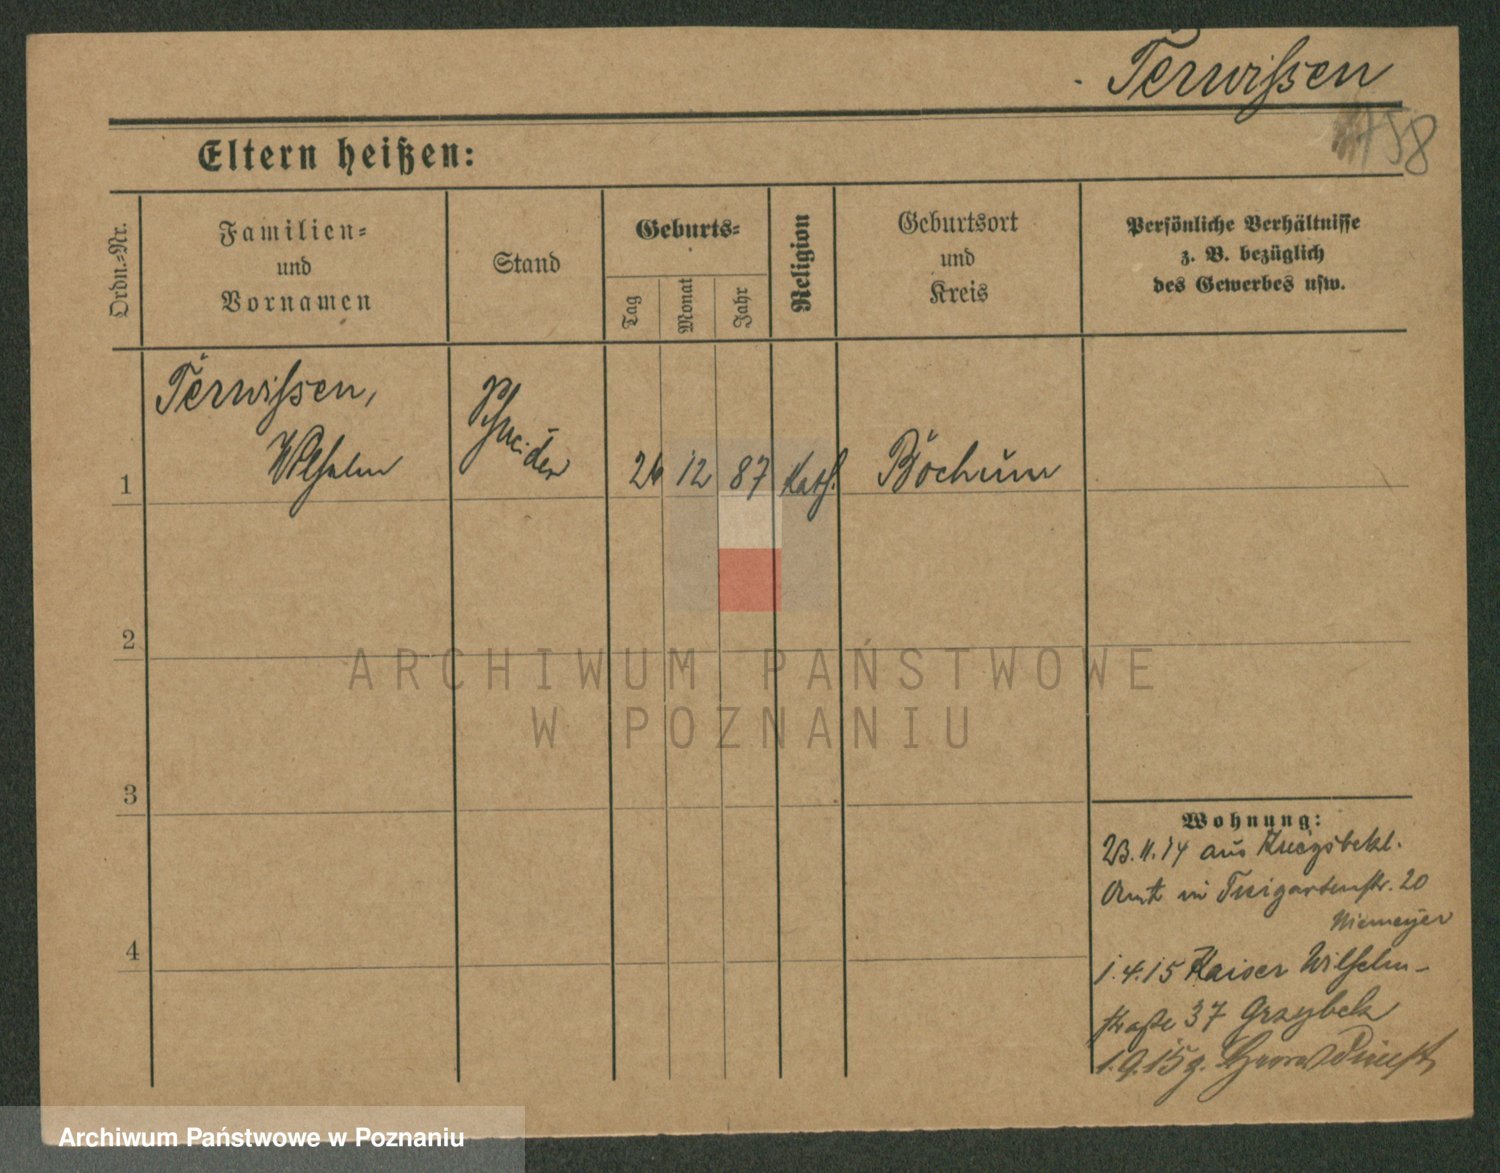 Terwissen
758
Eltern heißen:
Ordn.-Nr.
Familien-
und
Vornamen
Stand
Geburts-
Tag
Monat
Jahr
Religion
Geburtsort
und
Kreis
Persönliche Verhältnisse
z. B. bezüglich
des Gewerbes usw.
Terwissen,
Wilhelm
Schneider
1
26 12 87 Kath. Bochum
2
3
4
ARCHIWUM PAŃSTWOWE
W POZNANIU
Wohnung:
23.11.14 aus Kriegsbekl.
Amt in Tiergartenstr. 20
Niemeyer
1.4.15 Kaiser Wilhelm-
straße 37 Grzybek
1.9.15
Archiwum Państwowe w Poznaniu